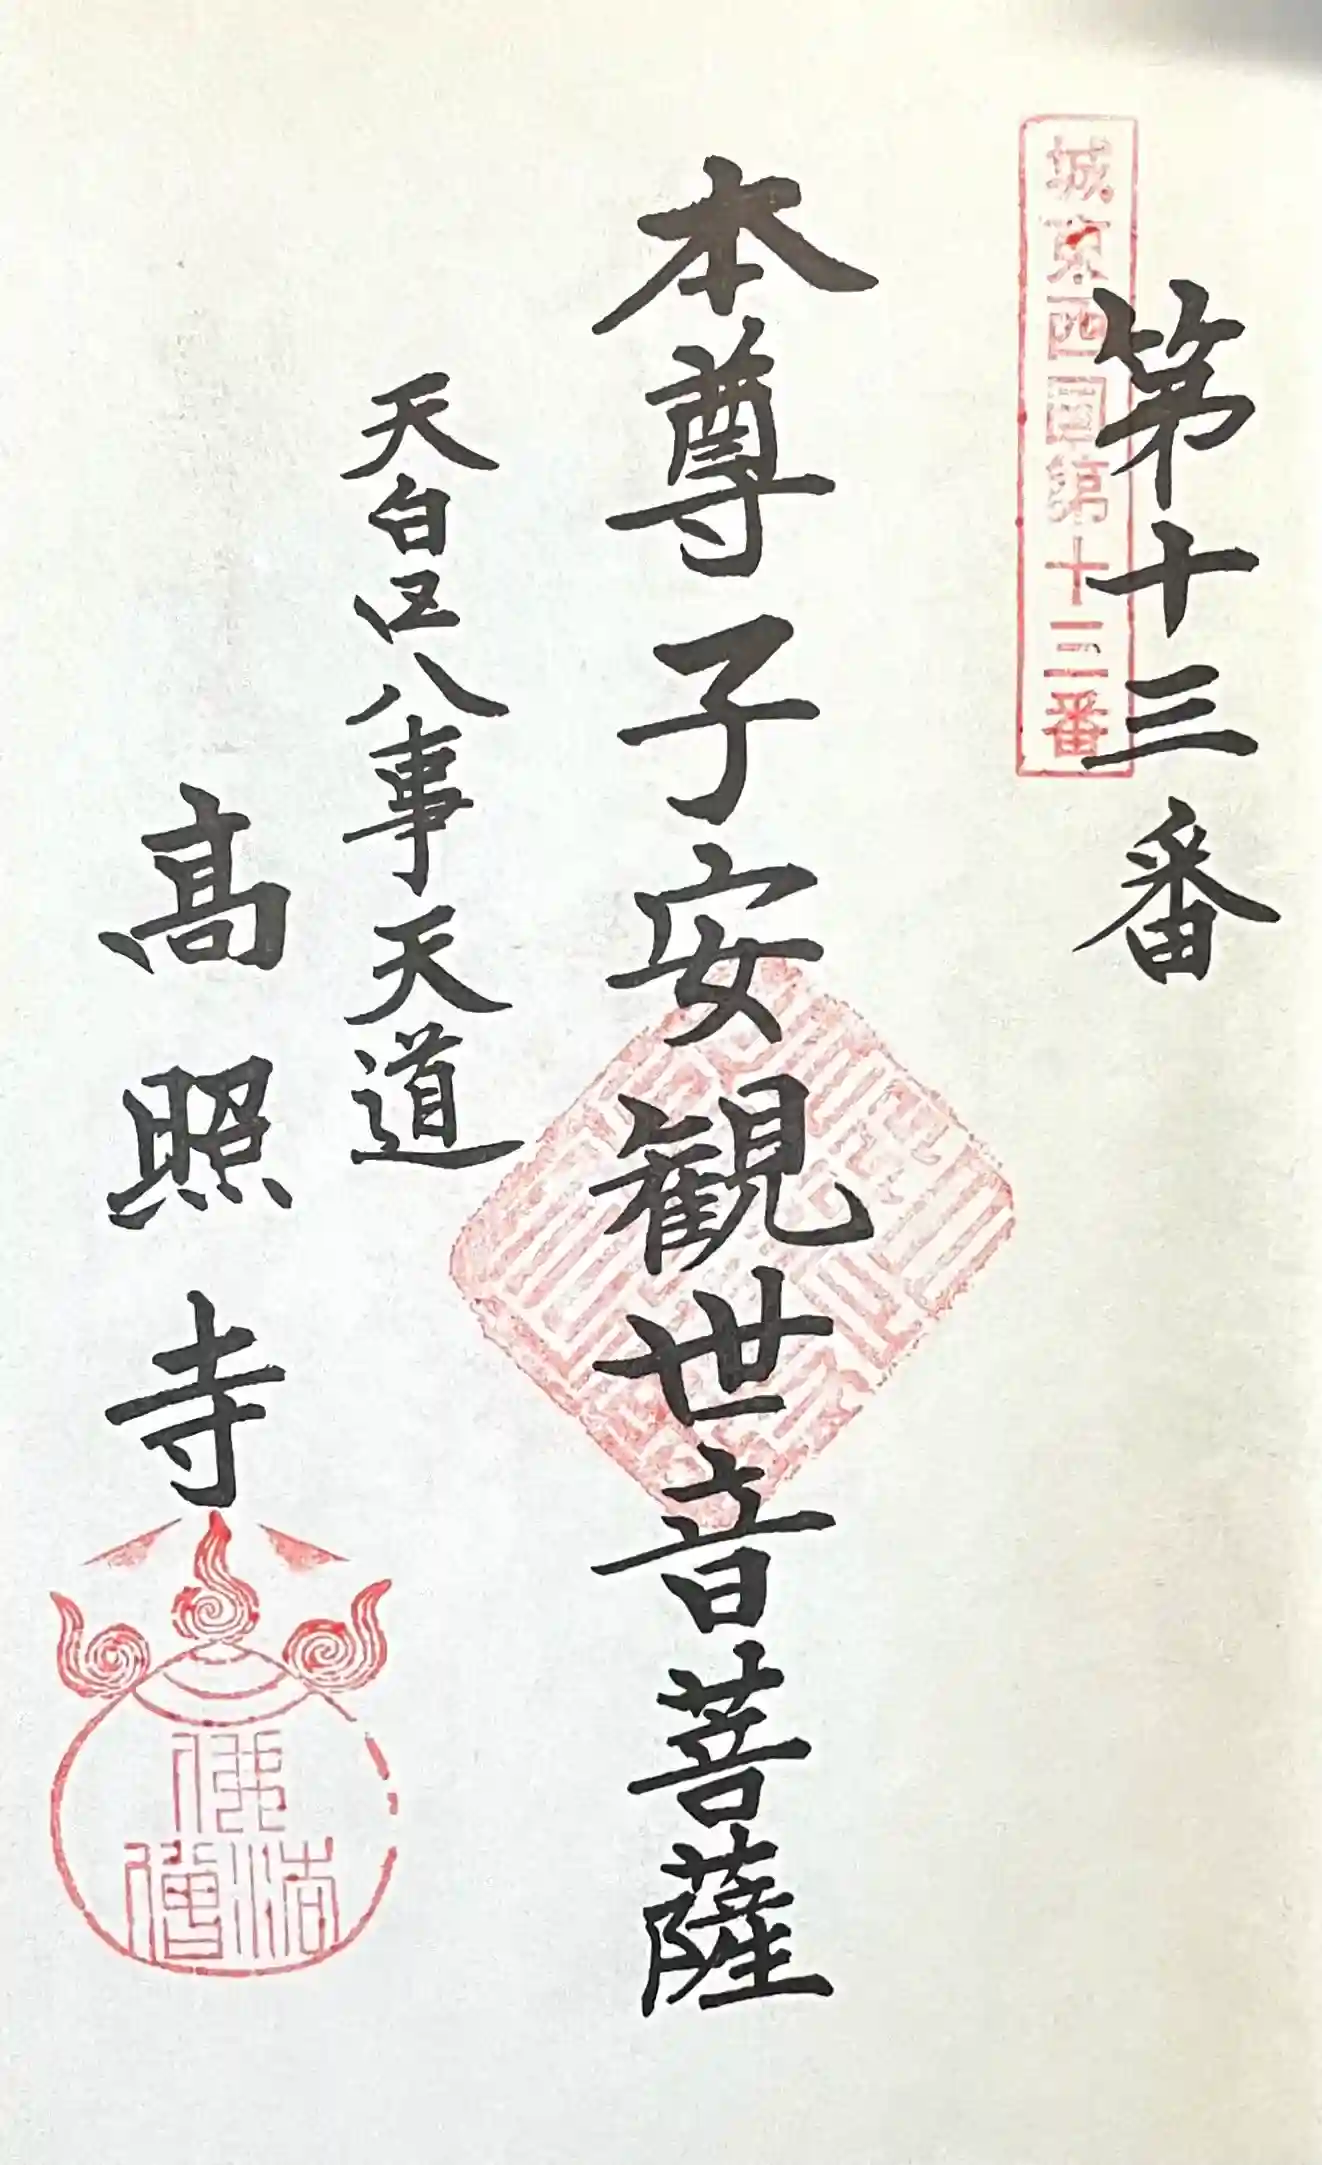 第十三番
城東西国第十三番
本尊子安観世音菩薩
天白区八事天道
高照寺
佛
法
僧